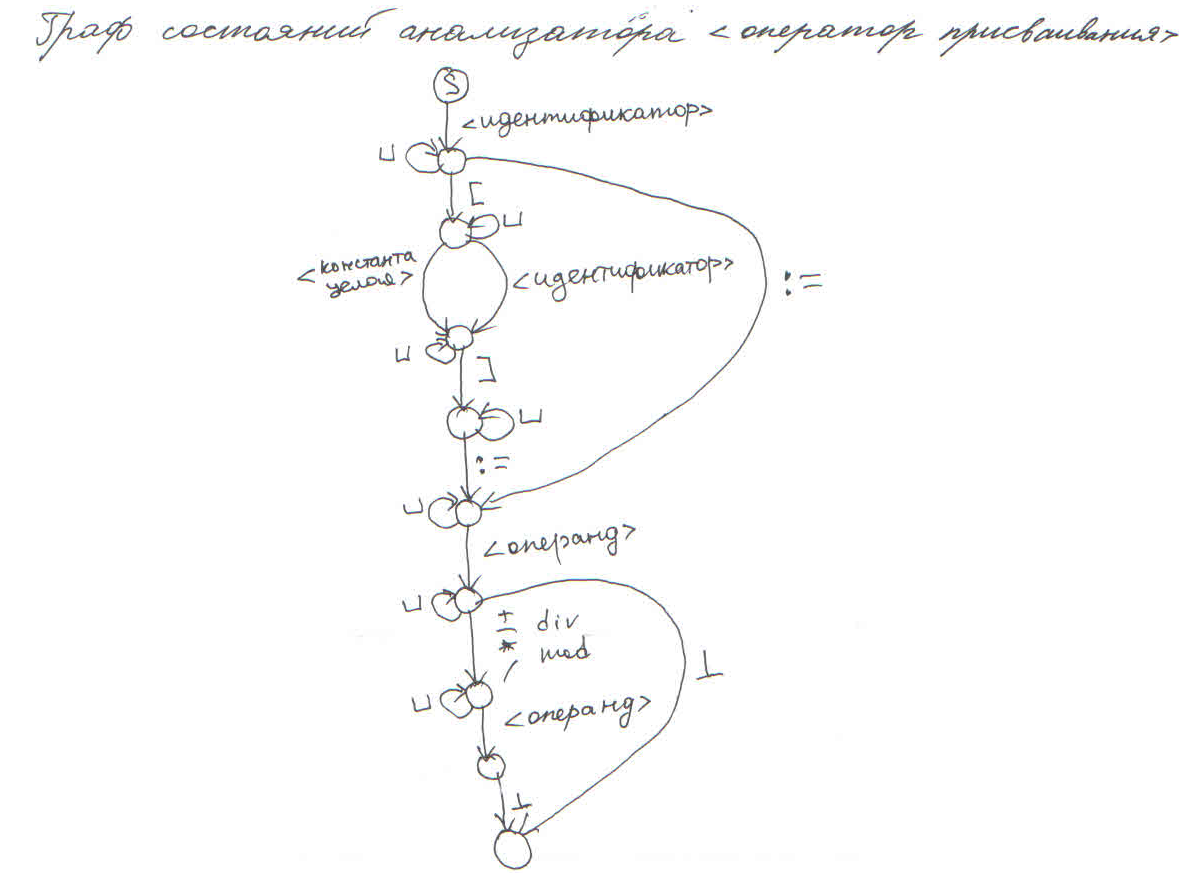 Граф состояний анализатора <оператор присваивания>
S
<идентификатор>
⊔
[
⊔
<константа
целая>
<идентификатор>
:=
⊔
]
⊔
:=
⊔
<операнд>
⊔
+ div
-
* mod
/
⊥
⊔
<операнд>
⊥